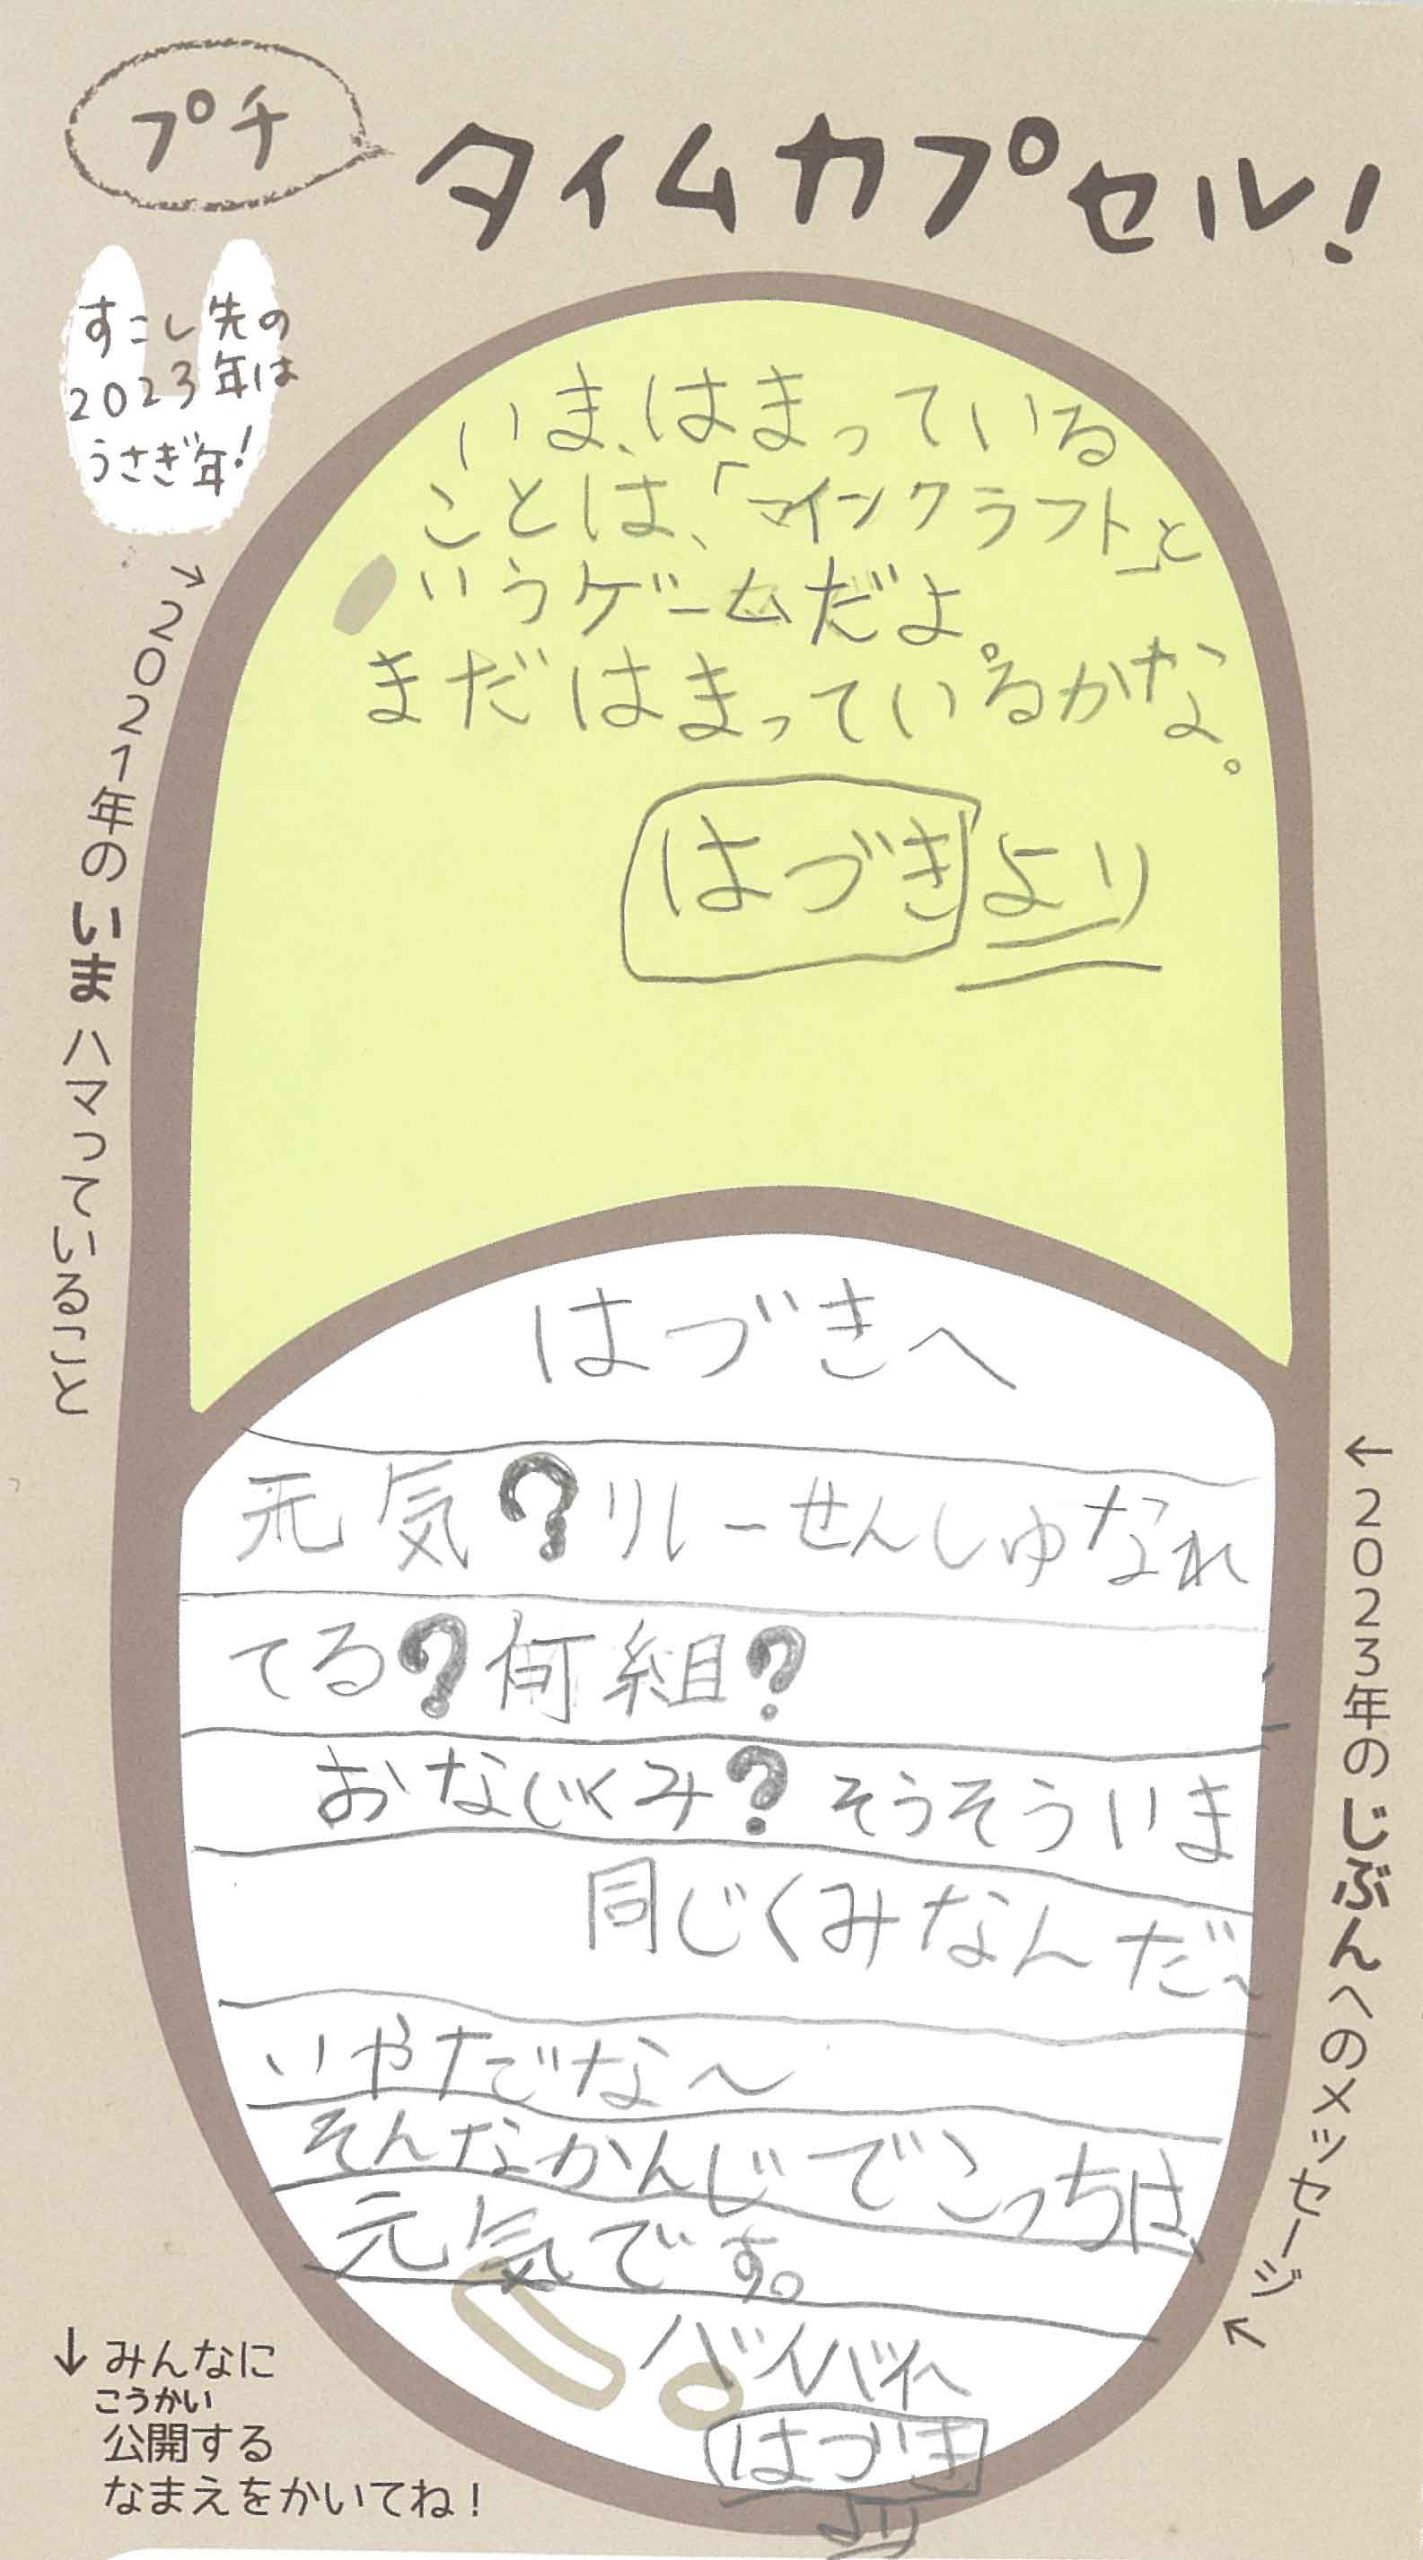 プチ
タイムカプセル!
すこし先の
2023年は
うさぎ年!
→2021年のいまハマっていること
いま、はまっている
ことは、「マインクラフト」と
いうゲームだよ。
まだはまっているかな。
はづきより
←2023年のじぶんへのメッセージ↖
はづきへ
元気?リレーせんしゅなれ
てる?何組?
おなじくみ?そうそういま
同じくみなんだ〜
いやだでな〜
そんなかんじでこっちは、
元気です。
バイバイ〜
はづき
より
↓みんなに
こうかい
公開する
なまえをかいてね!